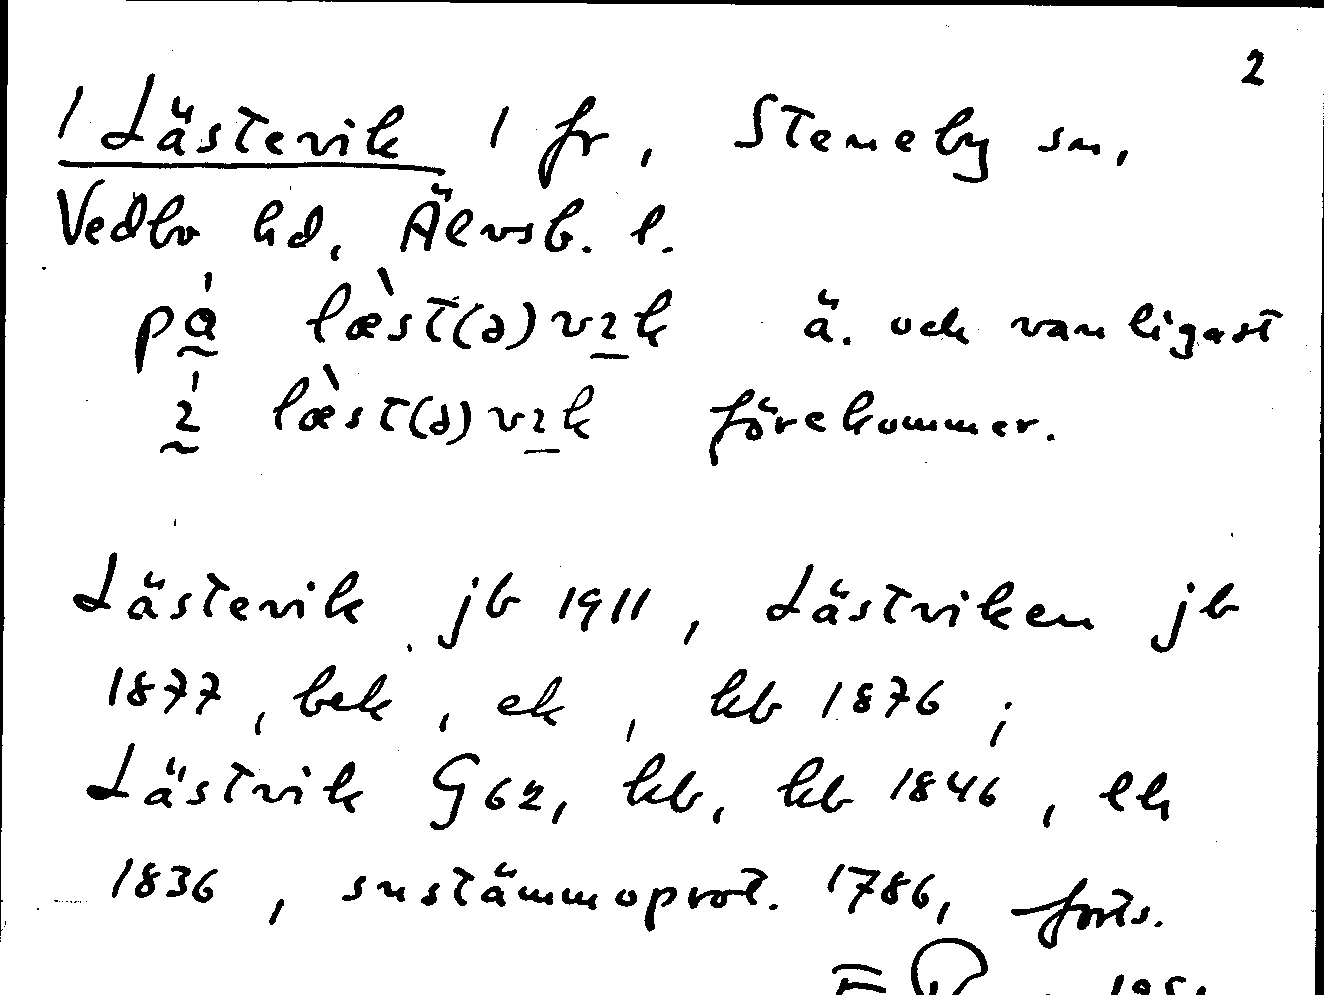 2
1 Lästevik 1 fr, Steneby sn,
Vedbo hd, Älvsb. l.
på læ̀st(ə)vɩk ä. och vanligast
ɩ læ̀st(ə)vɩk förekommer.
Lästevik jb 1911, Lästviken jb
1877, bek, ek, kb 1876;
Lästvik G62, kb, kb 1846, ek
1836, snstämmoprot. 1786, forts.